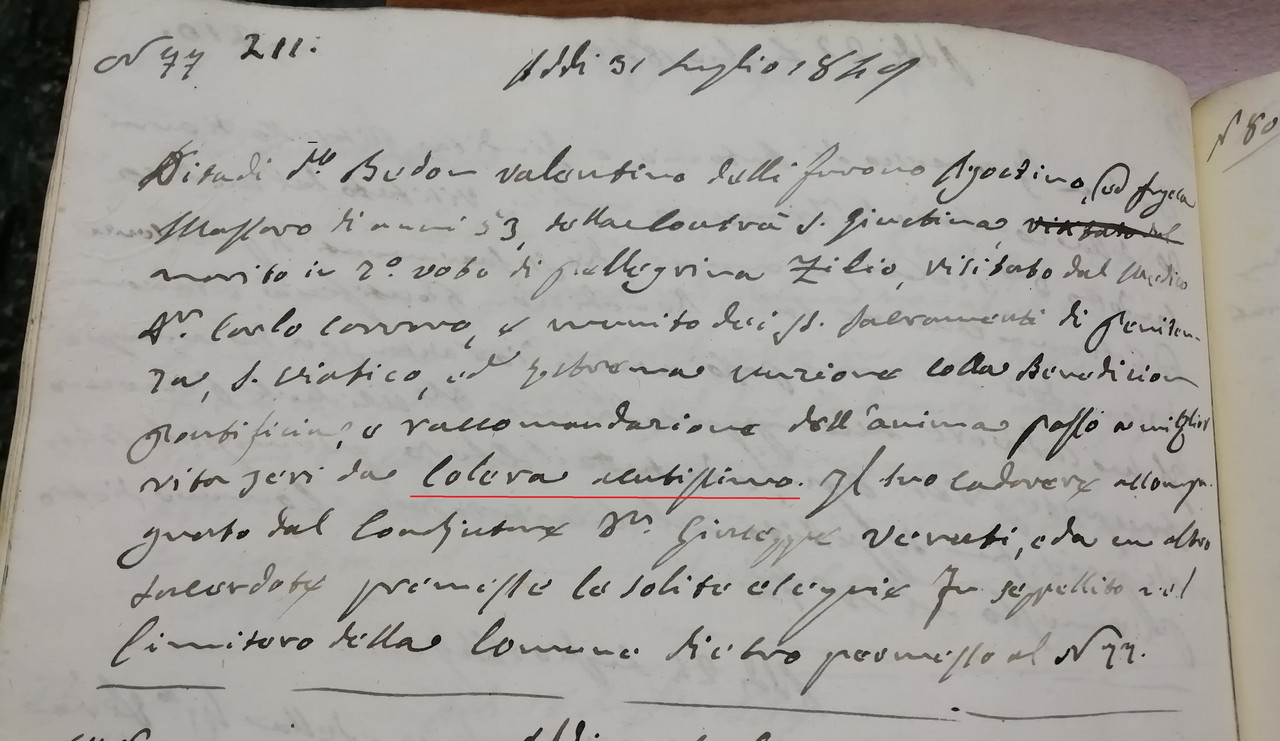 N 77 211:
Addi 31 luglio 1849
N 80
Ditadi Bedon Valentino delli furono Agostino, ed
Massaro di anni 53, della Contrà S. Giustina, visitato dal
marito in 2º voto di Pellegrina Zilio, visitato dal Medico
Dr. Carlo, e munito dei SS. Sacramenti di Peniten-
za, S. Viatico, ed estrema unzione colla Benedizion
Pontificia, e raccomandazione dell'anima passò a miglior
vita jeri da Colera acutissimo. Il suo cadavere accompa-
gnato dal Coadjutore Dn. Giuseppe Veruti, e da un altro
sacerdote premesse le solite esequie fu seppellito nel
Cimitero della Comune dietro permesso al N 77.